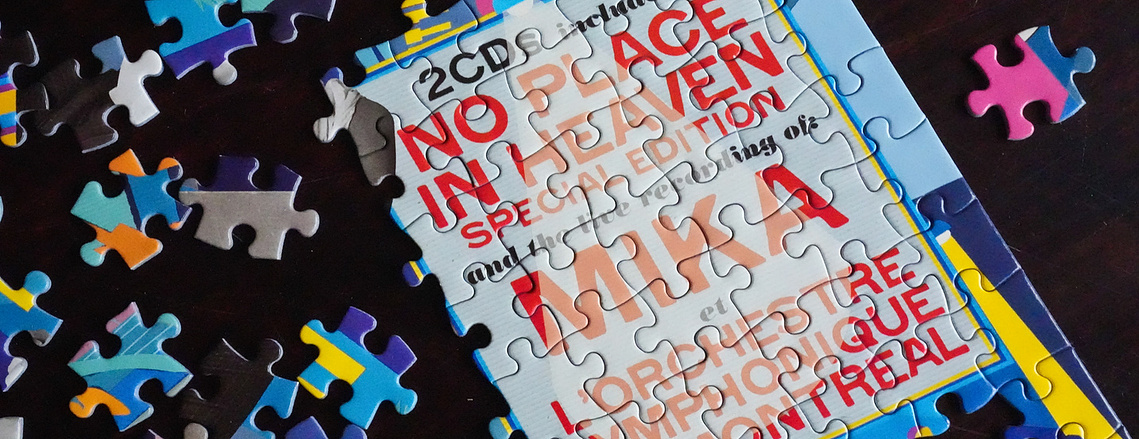 2CDs include
NO PLACE
IN HEAVEN
SPECIAL EDITION
and the live recording of:
MIKA
et
L'ORCHESTRE
YMPHONIQUE
MONTREAL